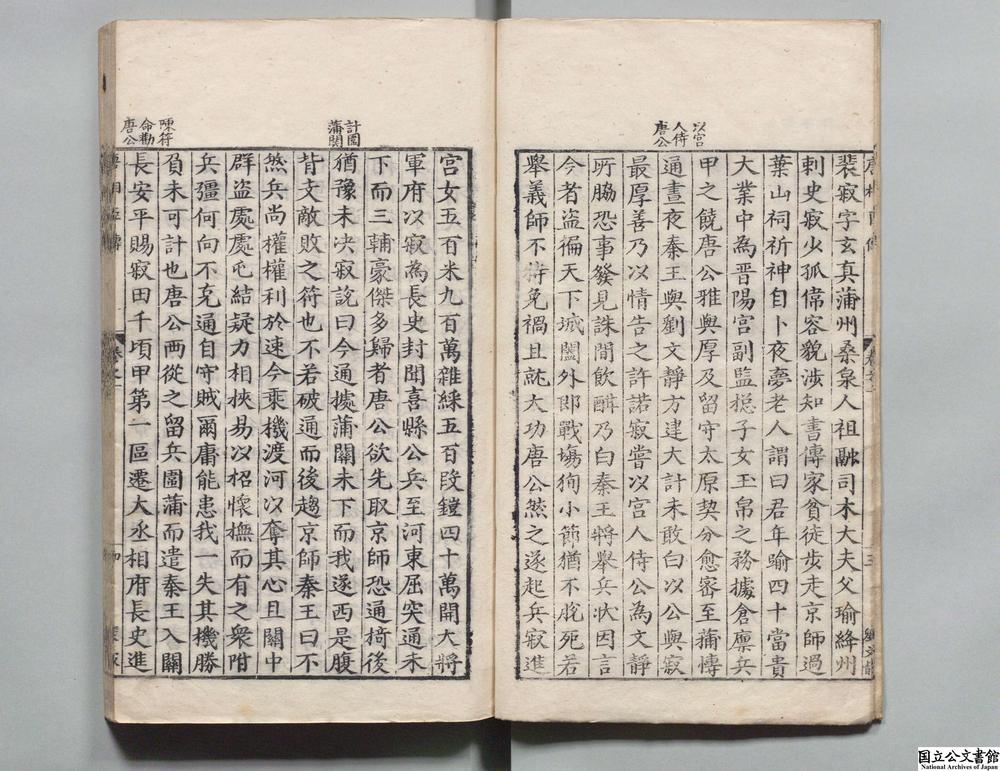 以宮
人侍
唐公
裴寂字玄真蒲州桑泉人祖融司木大夫父瑜絳州
刺史寂少孤偉容貌涉知書傳家貧徒步走京師過
葉山祠祈神自卜夜夢老人謂曰君年踰四十當貴
大業中為晋陽宮副監摠子女玉帛之務據倉廪兵
甲之饒唐公雅與厚及留守太原契分愈密至蒱慱
通晝夜秦王與劉文靜方建大計未敢白以公與寂
最厚善乃以情告之許諾寂嘗以宮人侍公為文靜
所脇恐事發見誅間飲酣乃白秦王將舉兵狀因言
今者盗徧天下城闉外即戰場徇小節猶不脫死若
舉義師不待免禍且就大功唐公然之遂起兵寂進
計圖
蒲關
陳符
命勸
唐公
宮女五百米九百萬雜綵五百段鎧四十萬開大將
軍府以寂為長史封聞喜縣公兵至河東屈突通未
下而三輔豪傑多歸者唐公欲先取京師恐通掎後
猶豫未决寂說曰今通據蒲關未下而我遂西是腹
背支敵敗之符也不若破通而後趨京師秦王曰不
然兵尚權權利於速今乘機渡河以奪其心且關中
群盗處處屯結疑力相挾易以招懷撫而有之衆附
兵彊何向不克通自守賊爾庸能患我一失其機勝
負未可計也唐公兩從之留兵圍蒲而遣秦王入關
長安平賜寂田千頃甲第一區遷大丞相府長史進
国立公文書館
National Archives of Japan